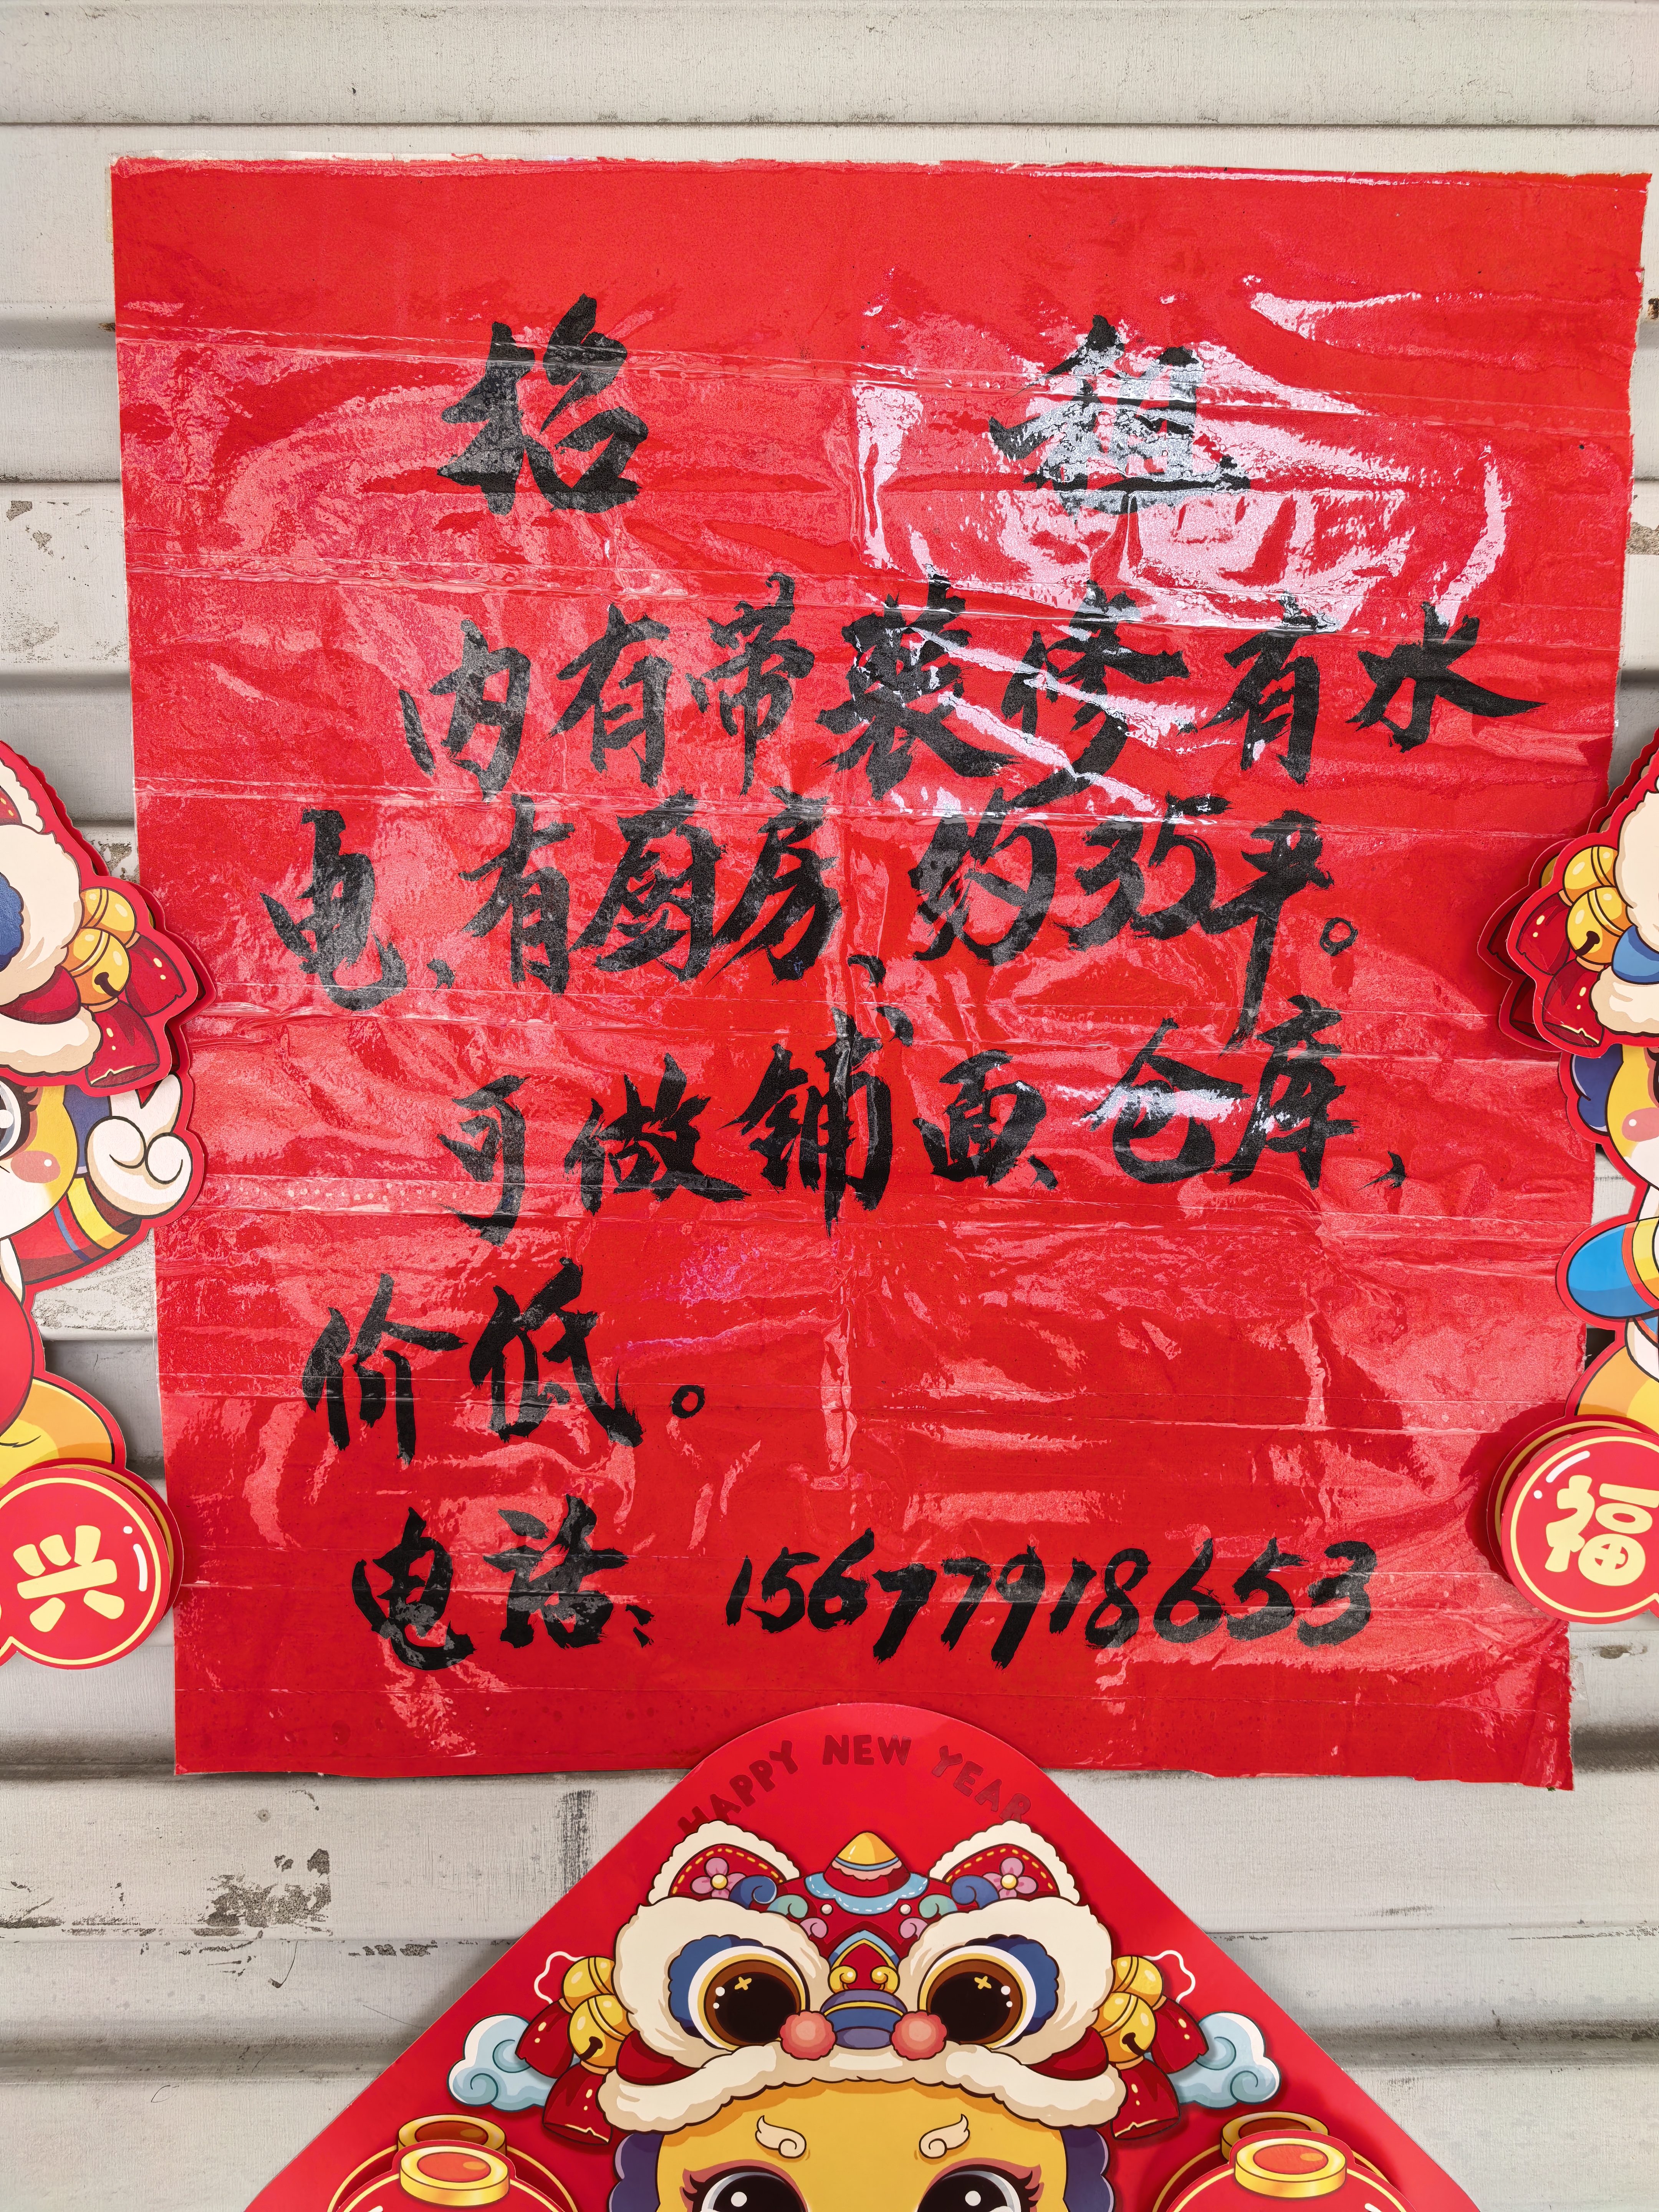 招 租
内有带装修有水
电、有厨房、约35平。
可做铺面、仓库、
价低。
电话、15677918653
兴
福
HAPPY NEW YEAR